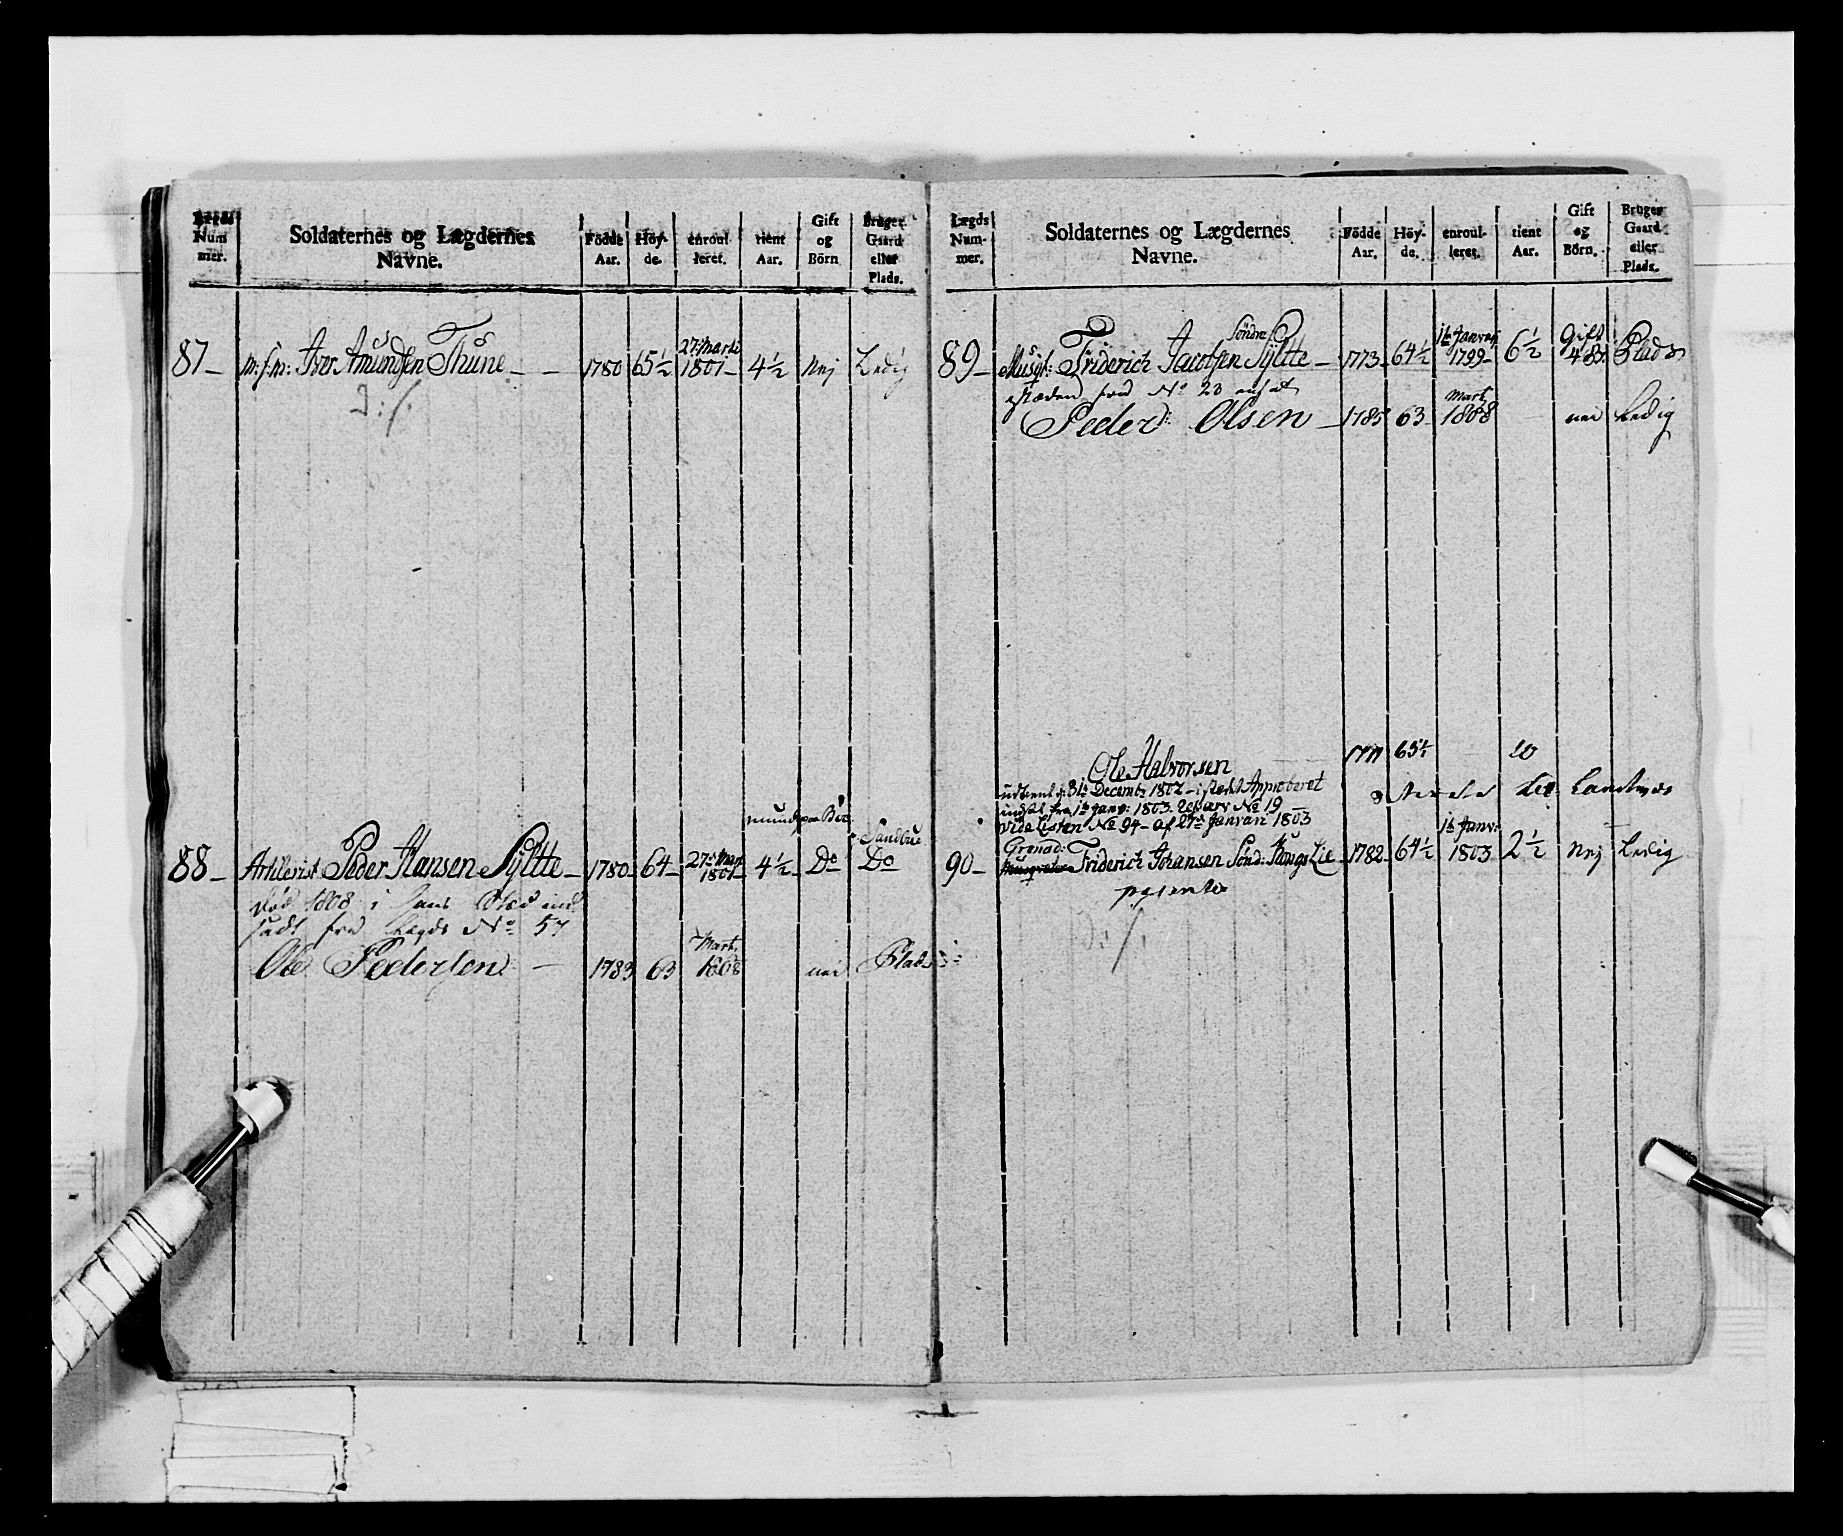 Lægds Num mer. Soldaternes og Lægdernes Navne. Födde Aar. Höy- de. enroul- leret. tient Aar. Gift og Börn Bruger Gaard eller Plads.
87 — Iver Amundsen Thune — — 1780 65½ 27 Marti 1801 — 4½ Nej Ledig
88 — Artilerist Peder Hansen Syltte — 1780 — 64 — 27de Mart 1801 — 4½ — Do Do
død 1808 i hans Stæd ind
fra Lægds No 57
Ole Pedersen — 1783 63 Mart 1808 nei Plads
Lægds Num- mer. Soldaternes og Lægdernes Navne. Födde Aar. Höy- de. enroul- leret. tient Aar. Gift og Börn. Bruger Gaard eller Plads.
Söndre
89 — Musqt: Friderich Jacobsen Syltte — 1773 64½ 1te Januar 1799 — 6½ Gift 4 B: Plads
stæden fra No 23 ansat
Peder Olsen — 1785 63 Mart 1808 nei Ledig
Ole Halvorsen 1771 65½ 10
udtient d: 31te Decembr 1802 — i stædet Approberet
indsat fra 1te Janv: 1803. No 19 —
vide Listen No 94 — af 27de Januari 1803
Grenad:
90 — Friderich Johansen Sönd: Kongs Lie — 1782 64½ 1te Janv: 1803 2½ Nej Ledig